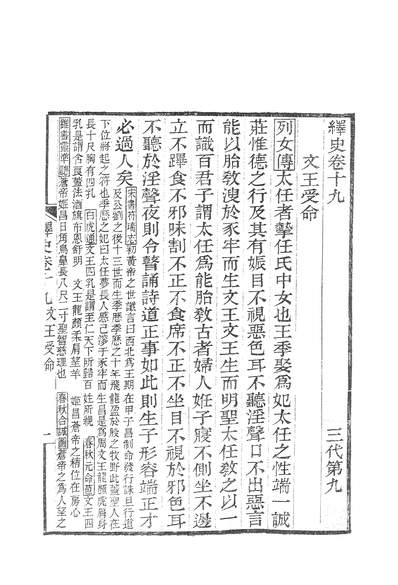 繹史卷十九　三代第九
文王受命
列女傳太任者摯任氏中女也王季娶爲妃太任之性端一誠
莊惟德之行及其有娠目不視惡色耳不聽淫聲口不出惡言
能以胎敎溲於豕牢而生文王文王生而明聖太任敎之以一
而識百君子謂太任爲能胎敎古者婦人妊子寢不側坐不邊
立不蹕食不邪味割不正不食席不正不坐目不視於邪色耳
不聽於淫聲夜則令瞽誦詩道正事如此則生子形容端正才
必過人矣
宋書符瑞志初黃帝之世讖言曰西北爲王期在甲子昌制命發行誅旦行道
及公劉之後十三世而生季歷季歷之十年飛龍盈於殷之牧野此蓋聖人在
下位將起之符也季歷之妃曰太任夢長人感己溲于豕牢而生昌是爲周文王龍顏虎肩身
長十尺胸有四乳　白虎通文王四乳是謂至仁天下所歸百姓所親　春秋元命苞文王四
乳是謂含良蓋法酒旗布恩舒明　文王龍顏柔肩望羊　姬昌蒼帝之精位在房心
雒書靈準聽蒼帝姬昌日角鳥鼻長八尺二寸聖智慈理也　春秋合誠圖蒼帝之爲人望之
繹史卷十九　文王受命　一